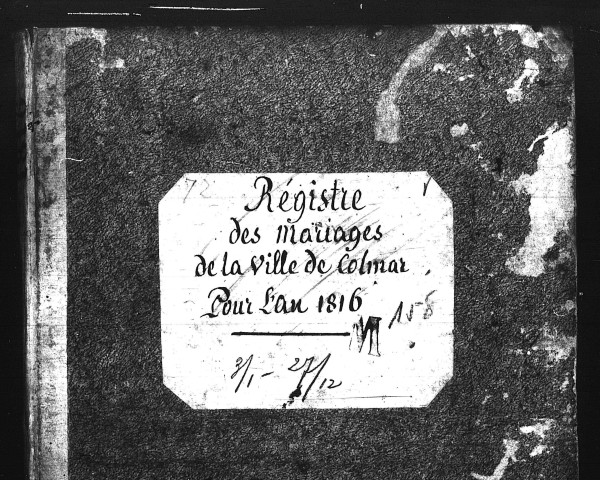 72
Régistre
des mariages
de la Ville de Colmar.
Pour L'an 1816
M 158
3/1 - 27/12